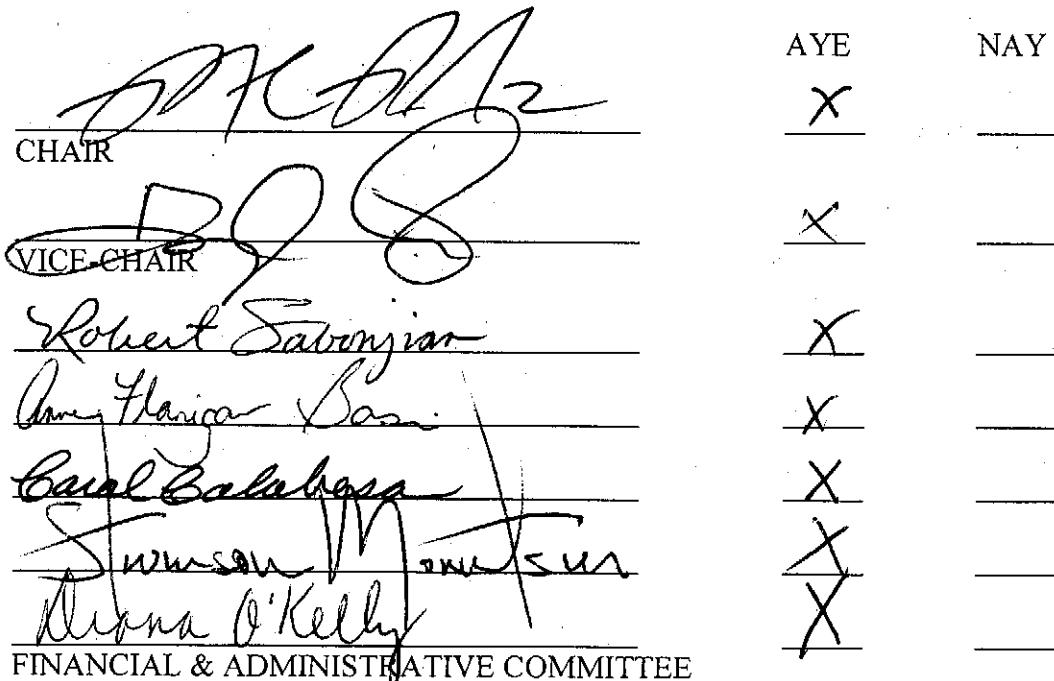 AYE NAY
X
CHAIR
X
VICE-CHAIR
Robert Sabonjian X
Anne Flanigan Bassi X
Carol Calabresa X
Stevenson Mountsier X
Diana O'Kelly X
FINANCIAL & ADMINISTRATIVE COMMITTEE